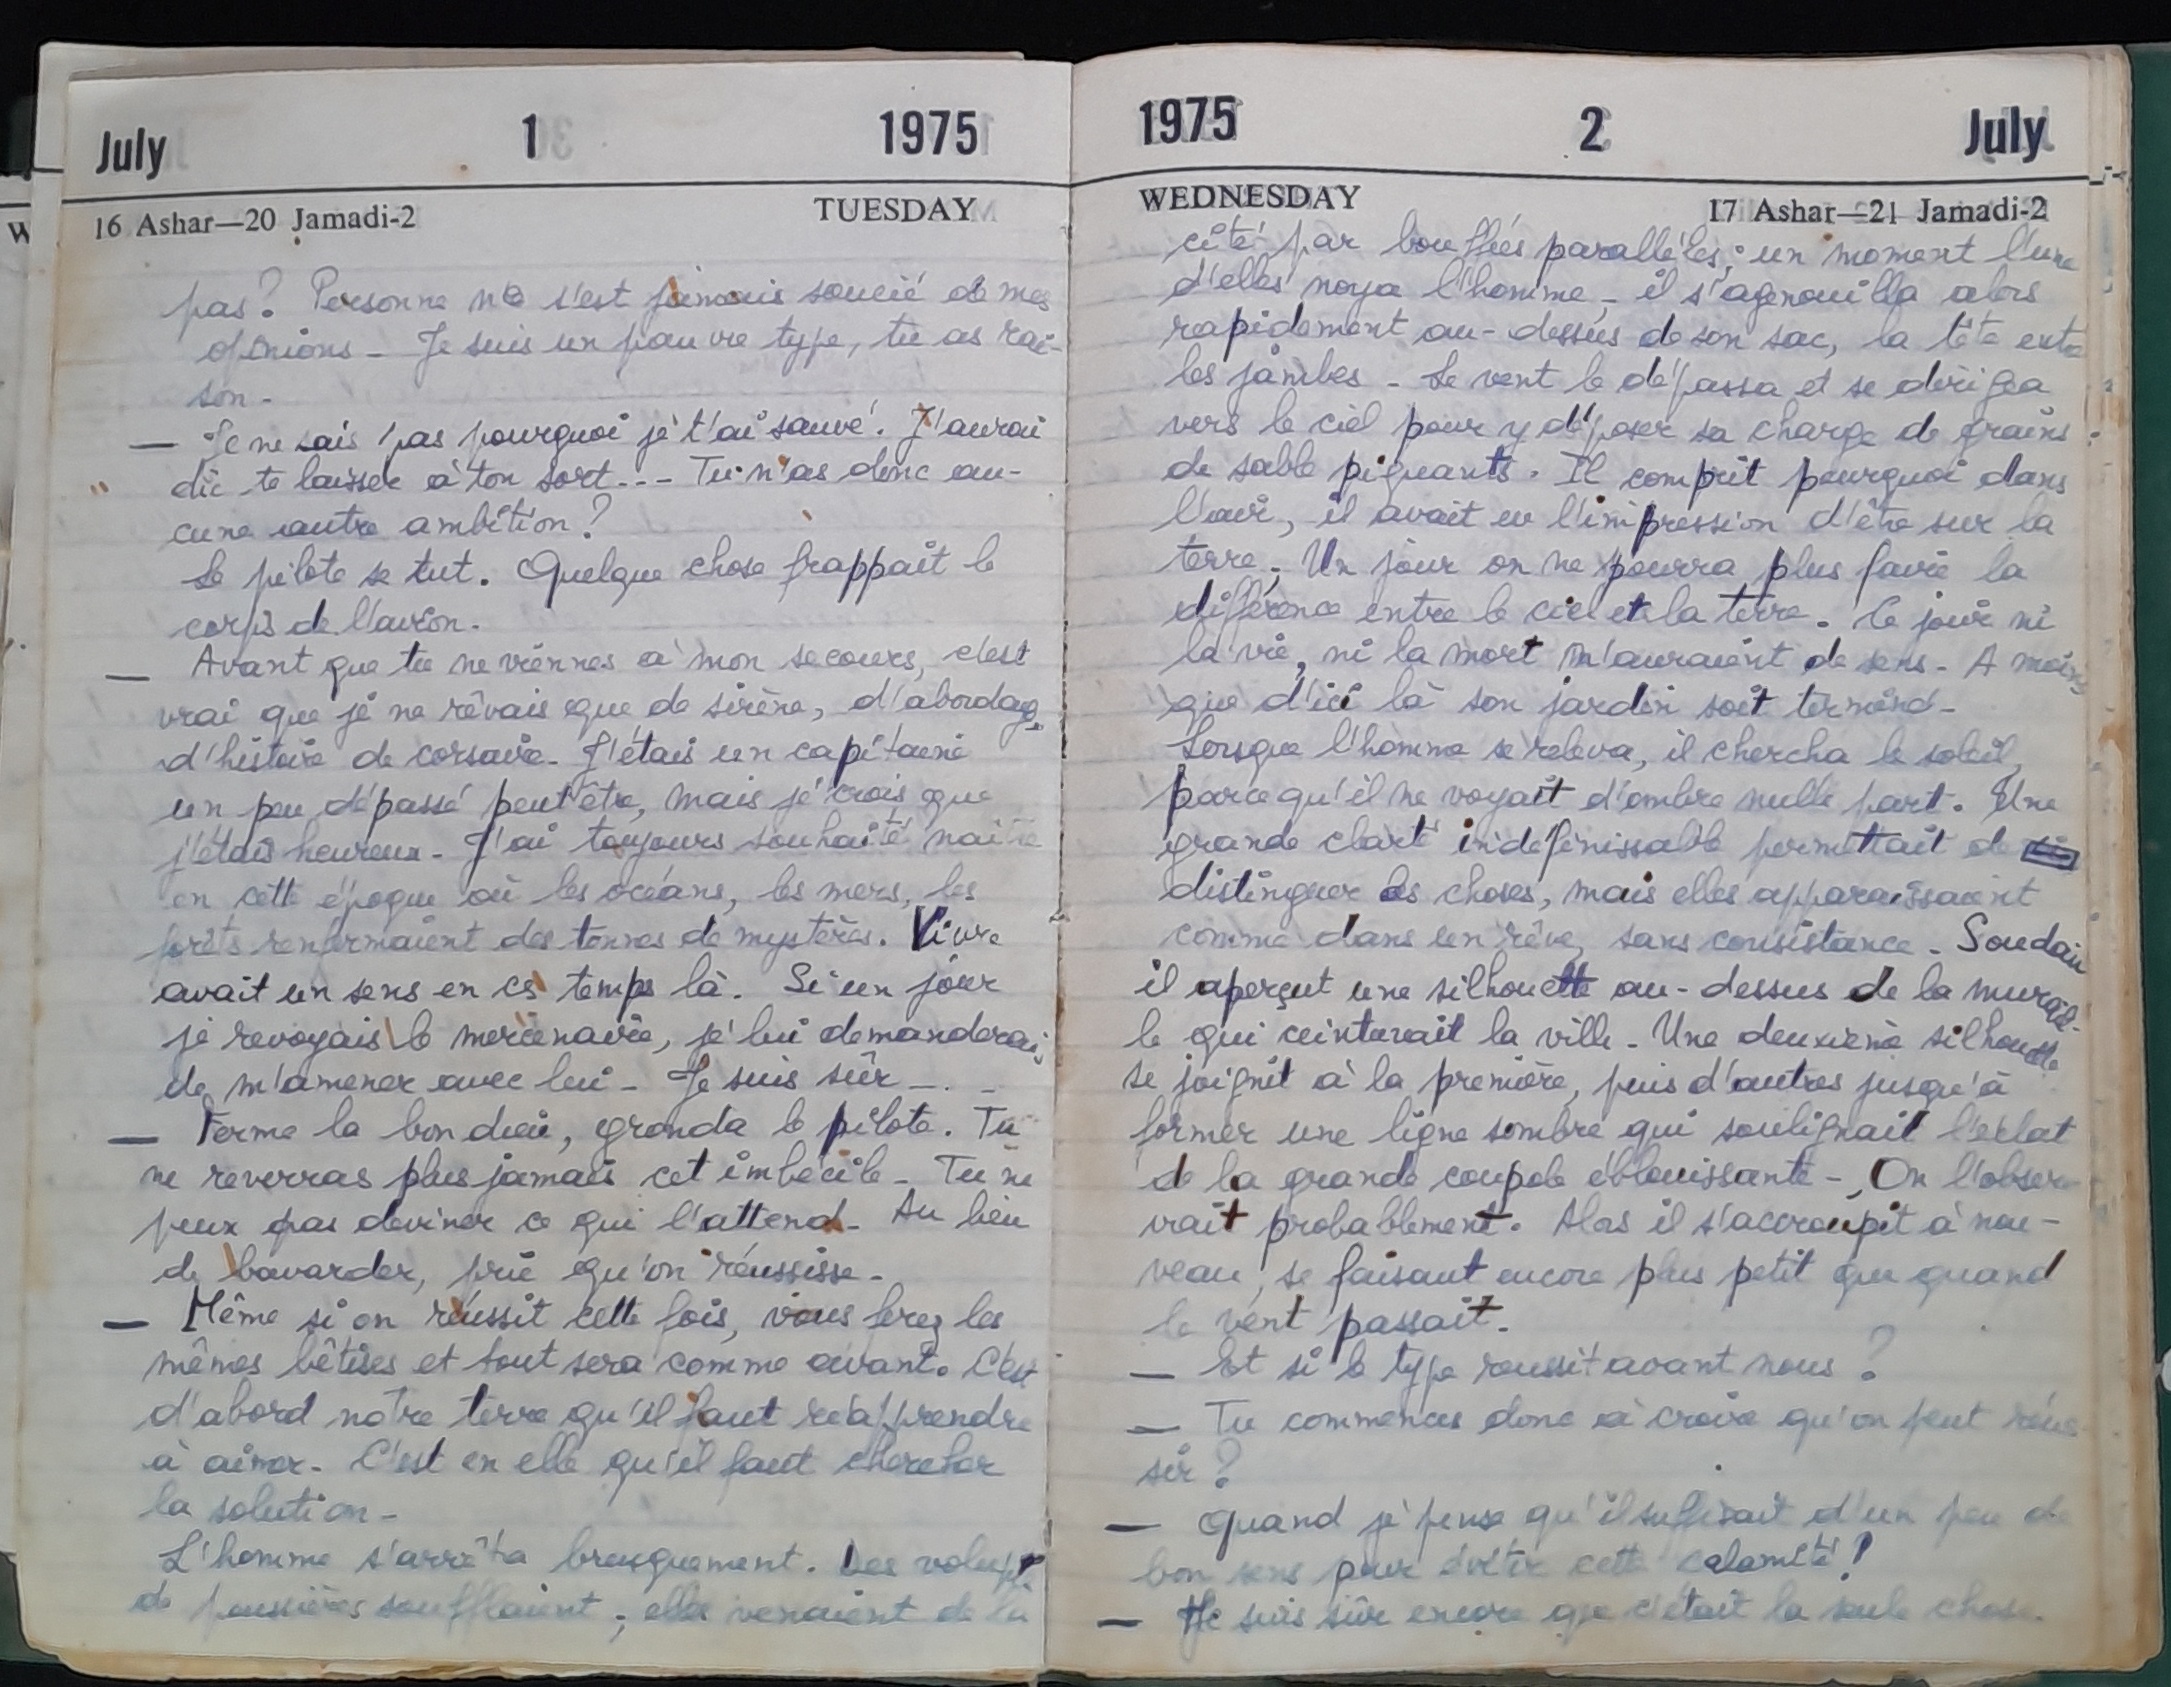 July 1 1975
16 Ashar—20 Jamadi-2 TUESDAY
pas? Personne ne s'est jamais soucié de mes
opinions - Je suis un pauvre type, tu as rai-
son -
— Je ne sais pas pourquoi je t'ai sauvé. J'aurai
dû te laisser à ton sort --- Tu n'as donc au-
cune autre ambition?
Le pilote se tut. Quelque chose frappait le
corps de l'avion.
— Avant que tu ne viennes à mon secours, c'est
vrai que je ne rêvais que de sirène, d'abordage,
d'histoire de corsaire. J'étais un capitaine
un peu dépassé peut être, mais je crois que
j'étais heureux - J'ai toujours souhaité naitre
en cette époque où les océans, les mers, les
forêts renfermaient des tonnes de mystères. Vivre
avait un sens en ces temps là. Si un jour
je revoyais le mercenaire, je lui demanderais
de m'amener avec lui - Je suis sûr - . -
— Ferme la bon dieu, gronda le pilote. Tu
ne reverras plus jamais cet imbécile - Tu ne
peux pas deviner ce qui l'attend - Au lieu
de bavarder, prie qu'on réussisse -
— Même si on réussit cette fois, vous ferez les
mêmes bêtises et tout sera comme avant. C'est
d'abord notre terre qu'il faut réapprendre
à aimer - C'est en elle qu'il faut chercher
la solution -
L'homme s'arrêta brusquement. Des
de poussières soufflaient ; elles venaient de la
1975 2 July
WEDNESDAY 17 Ashar—21 Jamadi-2
cité par bouffées parallèles ; un moment l'une
d'elles noya l'homme - il s'agenouilla alors
rapidement au-dessus de son sac, la tête entre
les jambes - Le vent le dépassa et se dirigea
vers le ciel pour y déposer sa charge de grains
de sable piquants. Il comprit pourquoi dans
l'air, il avait eu l'impression d'être sur la
terre. Un jour on ne pourra plus faire la
différence entre le ciel et la terre. Ce jour ni
la vie, ni la mort n'auraient de sens - A moins
que d'ici là son jardin soit terminé -
Lorsque l'homme se releva, il chercha le soleil,
parce qu'il ne voyait d'ombre nulle part. Une
grande clarté indéfinissable permettait de
distinguer les choses, mais elles apparaissaient
comme dans un rêve, sans consistance - Soudain
il aperçut une silhouette au-dessus de la murail-
le qui ceinturait la ville - Une deuxième silhouette
se joignit à la première, puis d'autres jusqu'à
former une ligne sombre qui soulignait l'éclat
de la grande coupole éblouissante - On l'obser-
vait probablement. Alors il s'accroupit à nou-
veau, se faisant encore plus petit que quand
le vent passait.
— Et si le type reussit avant nous ?
— Tu commences donc à croire qu'on peut réus-
sir ?
— Quand je pense qu'il suffisait d'un peu de
bon sens pour éviter cette calamité !
— Je suis sûr encore que c'était la seule chose